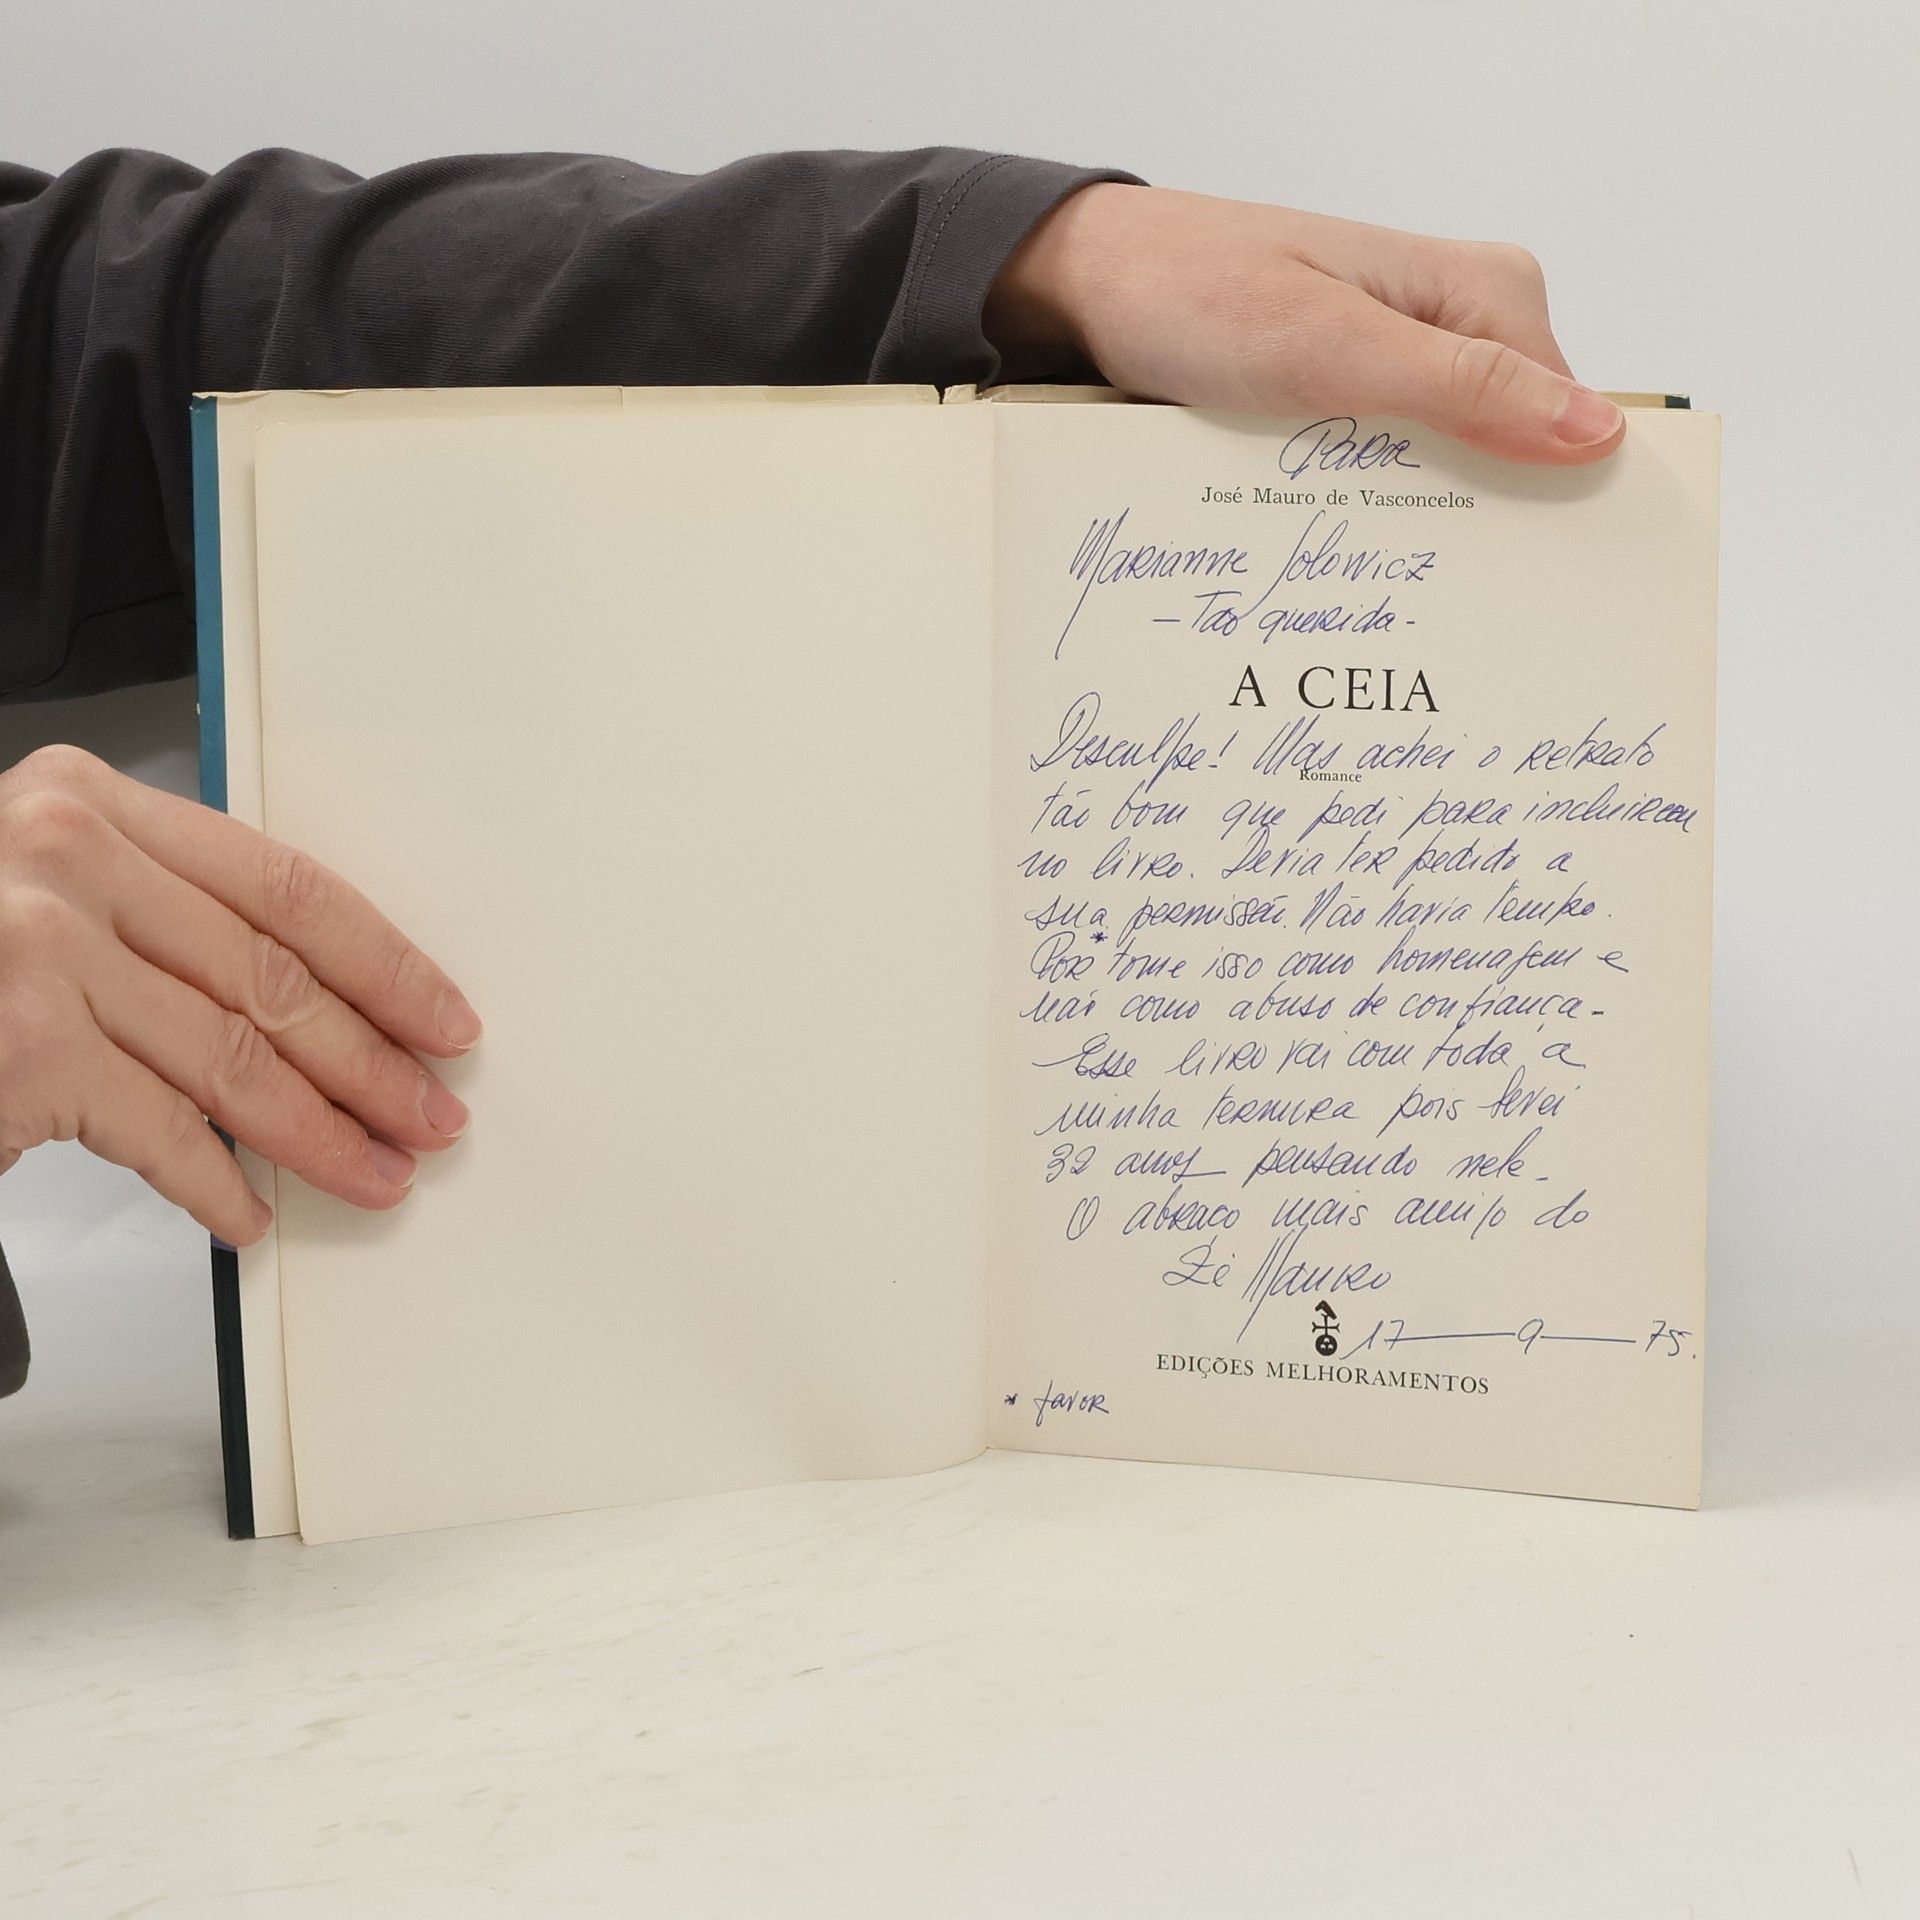 Para
José Mauro de Vasconcelos
Marianne Jolowicz
— Tão querida -
A CEIA
Desculpe! Mas achei o retrato
Romance
tão bom que pedi para incluirem
no livro. Devia ter pedido a
sua permissão. Não havia tempo.
Por * tome isso como homenagem e
não como abuso de confiança -
Esse livro vai com toda a
minha ternura pois levei
32 anos pensando nele -
O abraço mais amigo do
Zé Mauro
17 — 9 — 75.
EDIÇÕES MELHORAMENTOS
* favor